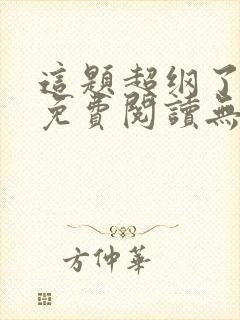 這題超纲了
免費閱讀無
方仲華